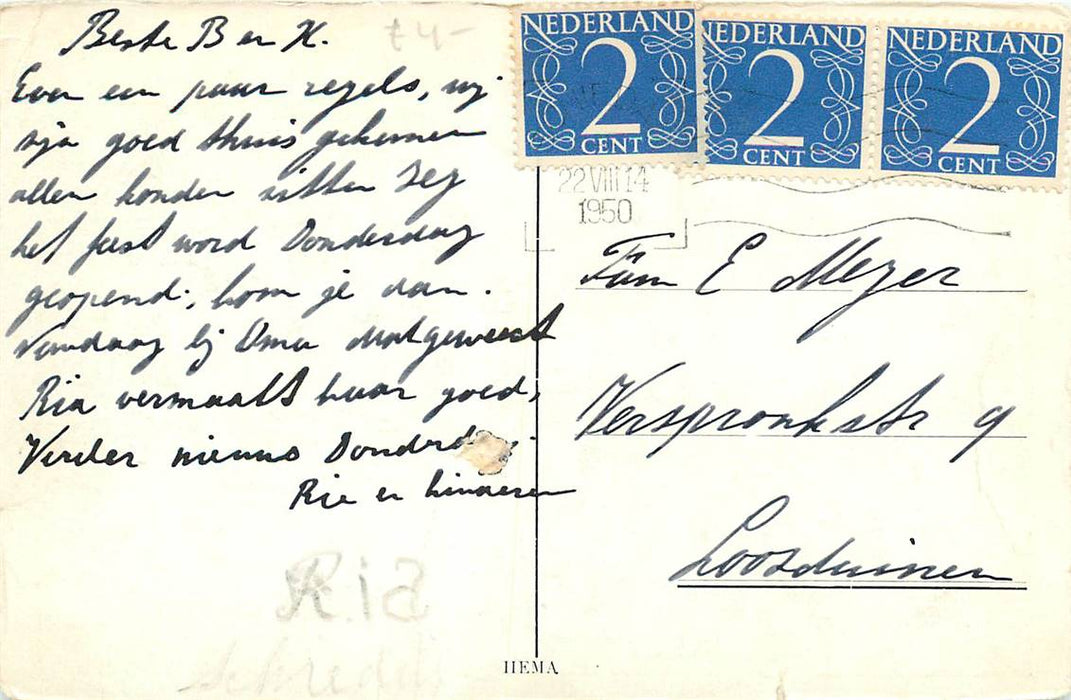 Beste B en K.
£4-
Even een paar regels, wij
zijn goed thuis gekomen
allen konden zitten zeg
het feest word Donderdag
geopend, kom je dan.
Vandaag bij Oma geweest
Ria vermaakt haar goed,
Verder nieuws Donderd
Rie en kinderen
Ria
NEDERLAND
2
CENT
NEDERLAND
2
CENT
NEDERLAND
2
CENT
22 VIII 14
1950
Fam E Meyer
Verspronkstr 9
Loosduinen
HEMA